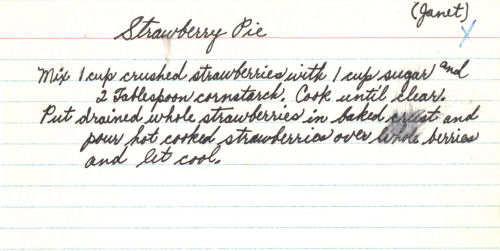 (Janet)
Strawberry Pie
Mix 1 cup crushed strawberries with 1 cup sugar and
2 Tablespoon cornstarch. Cook until clear.
Put drained whole strawberries in baked crust and
pour hot cooked strawberries over whole berries
and let cool.